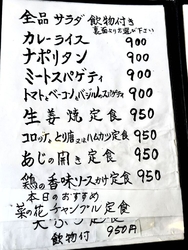 全品 サラダ 飲物付き
裏面よりお選び下さい
カレーライス 900
ナポリタン 900
ミートスパゲティ 900
トマトとベーコンとバジルのスパゲティ 900
生姜焼定食 950
コロッケ、とり唐又はハムカツ定食 950
あじの開き定食 950
鶏の香味ソースかけ定食 950
本日のおすすめ
菜の花チャンプル定食
飲物付 950円